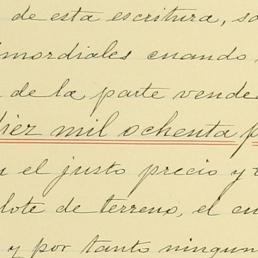 de esta escritura, so
mordiales cuando
de la parte vende
diez mil ochenta p
el justo precio y v
lote de terreno, el cu
y por tanto ningun